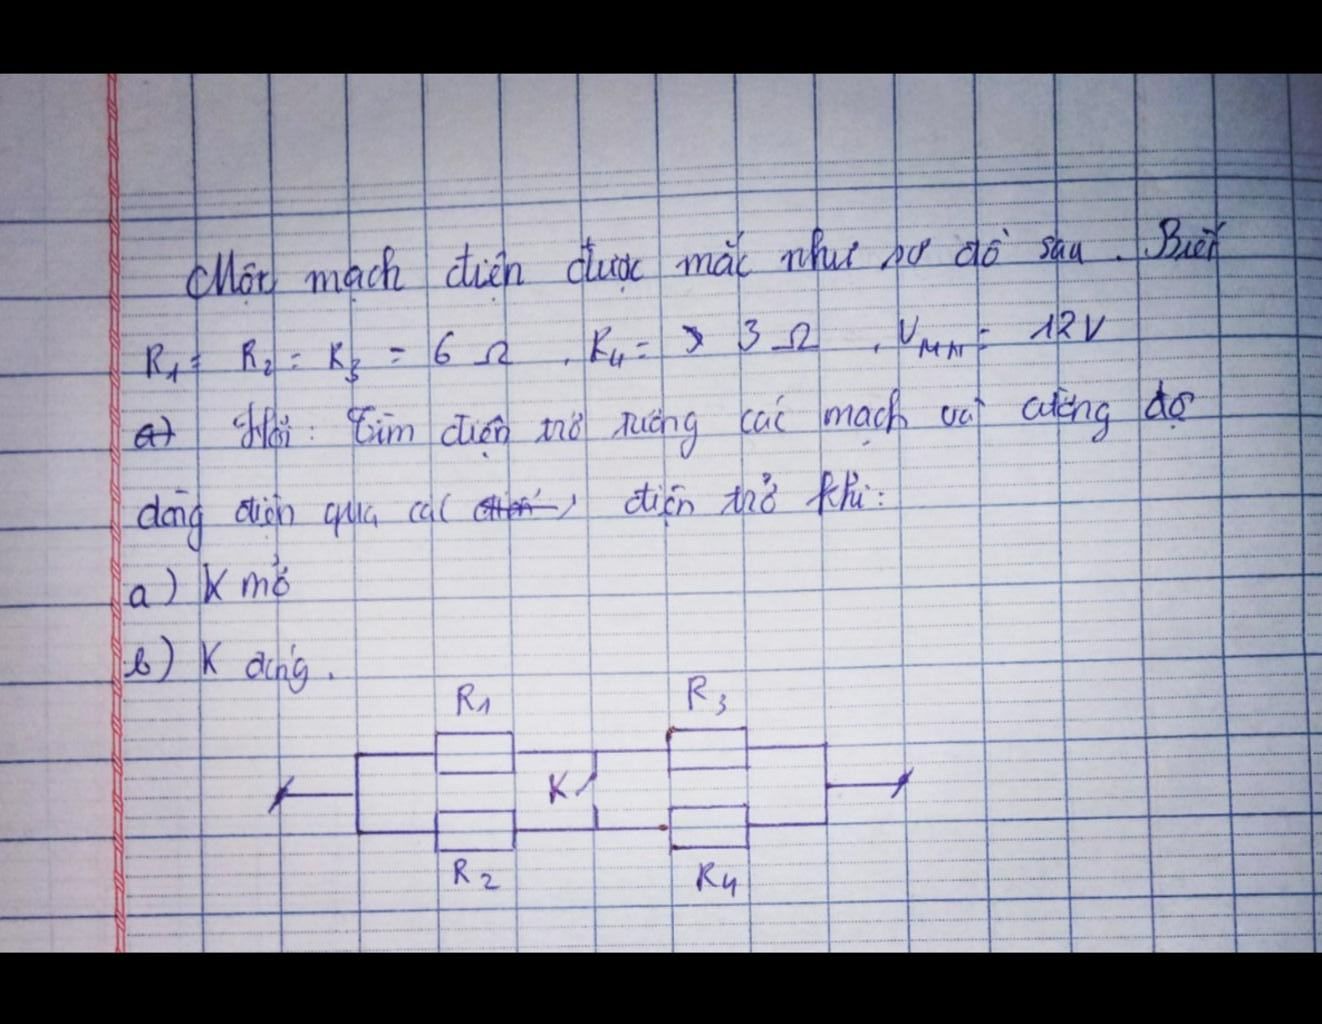 Một mạch điện được mắc như sơ đồ sau. Biết
R1 = R2 = R3 = 6 Ω, R4 = 3 Ω, UMN = 12V
a) Hỏi: Tìm điện trở tương các mạch và cường độ
dòng điện qua các điện trở khi:
a) K mở
b) K đóng.
R1 R3
K
R2 R4